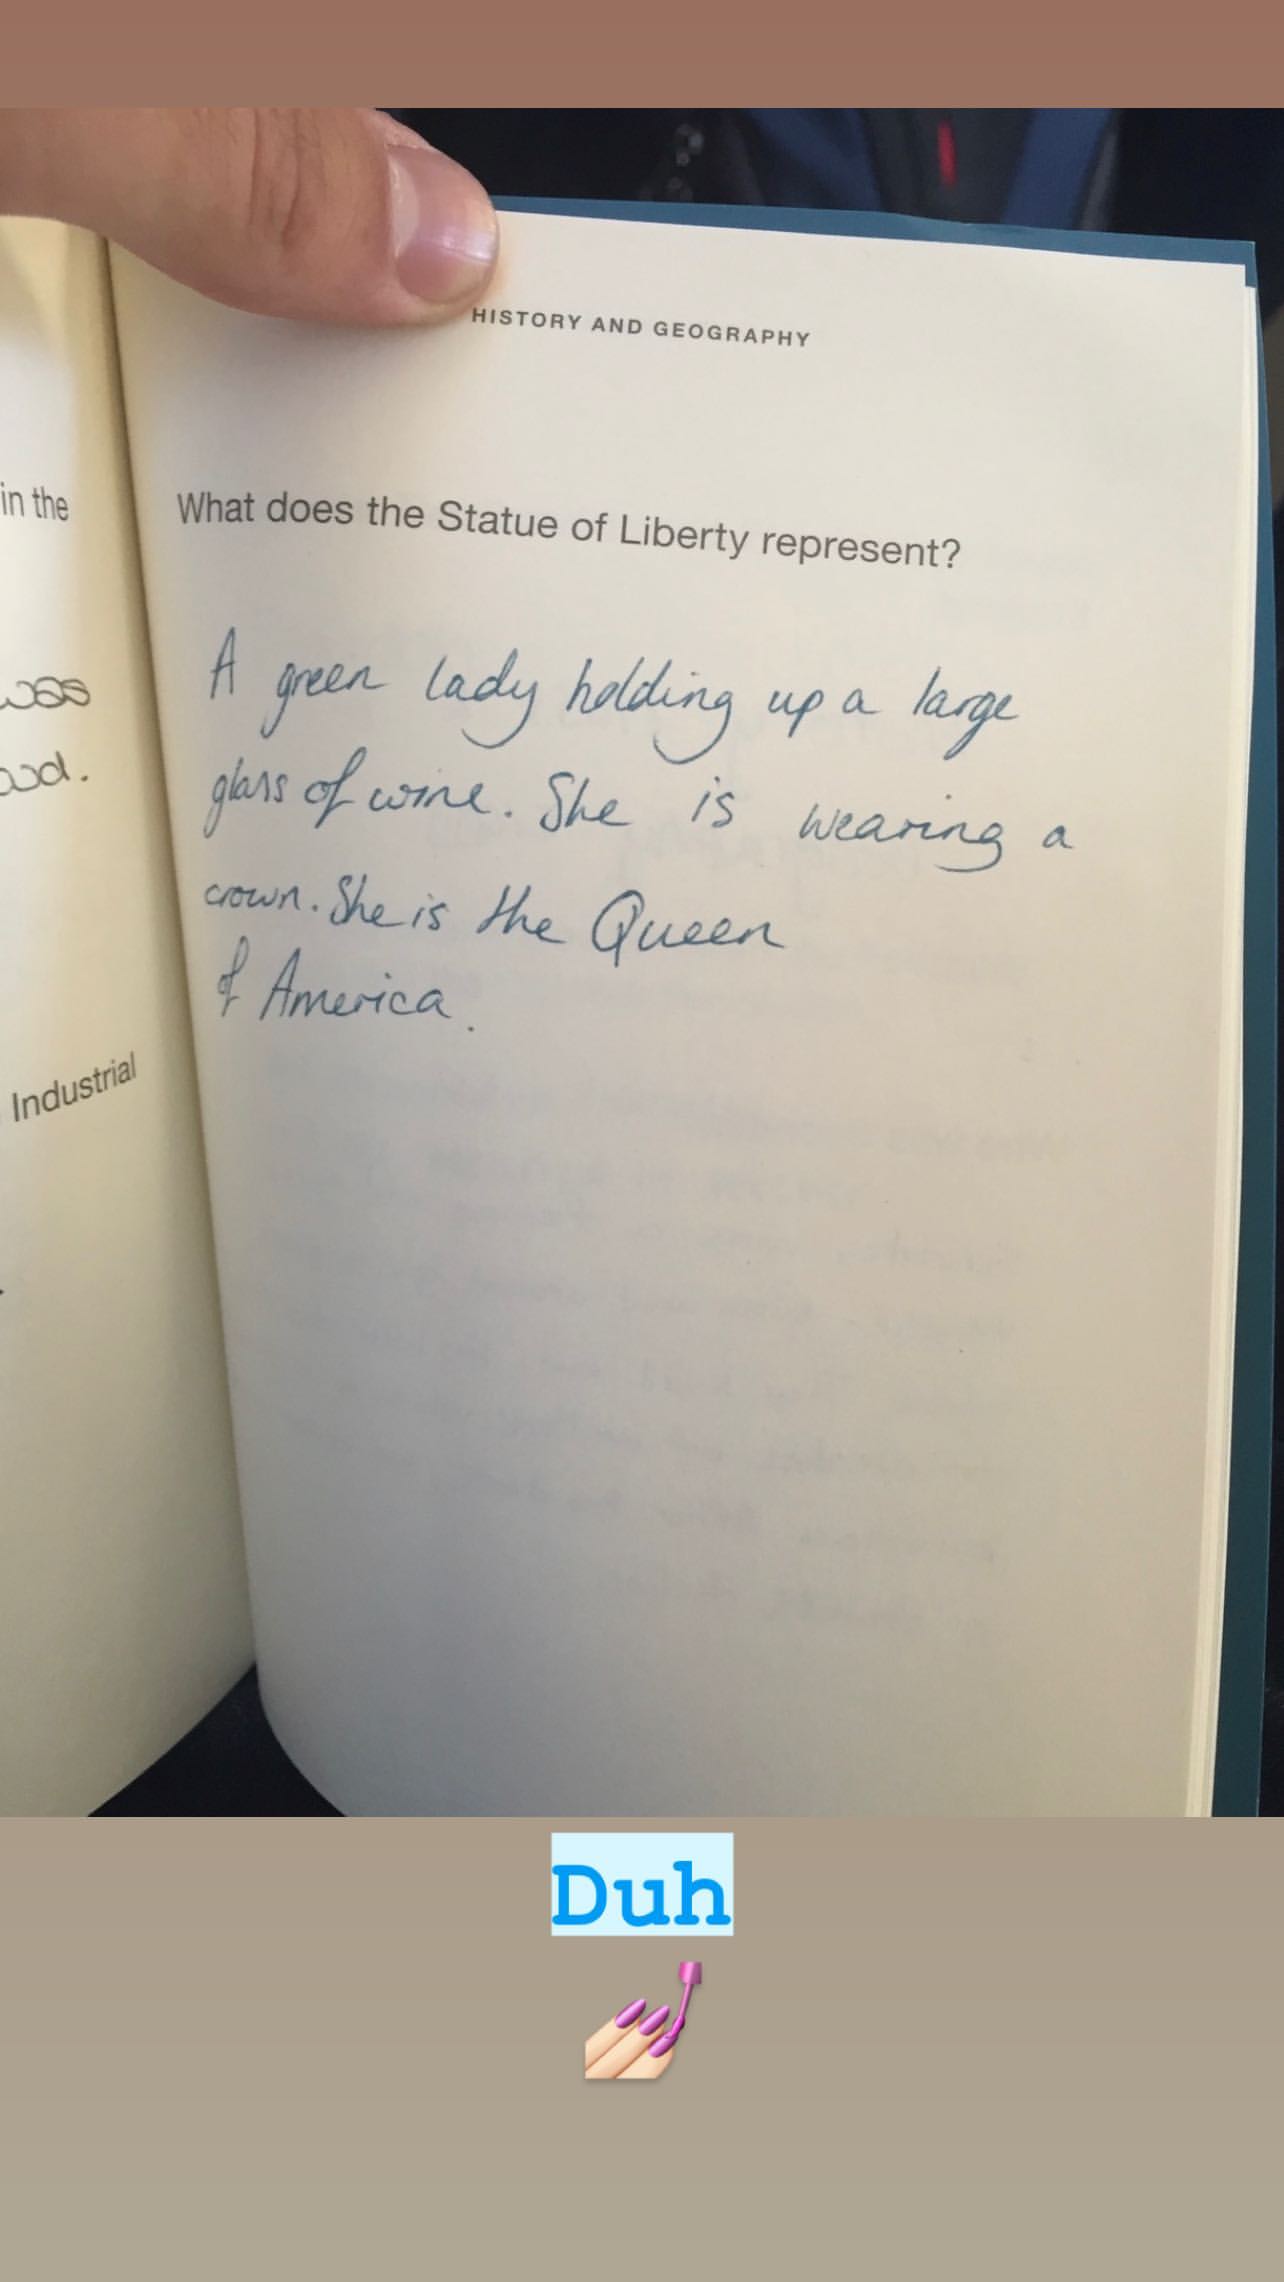 HISTORY AND GEOGRAPHY
in the
What does the Statue of Liberty represent?
was
A green lady holding up a large
glass of wine. She is wearing a
crown. She is the Queen
of America.
Industrial
Duh